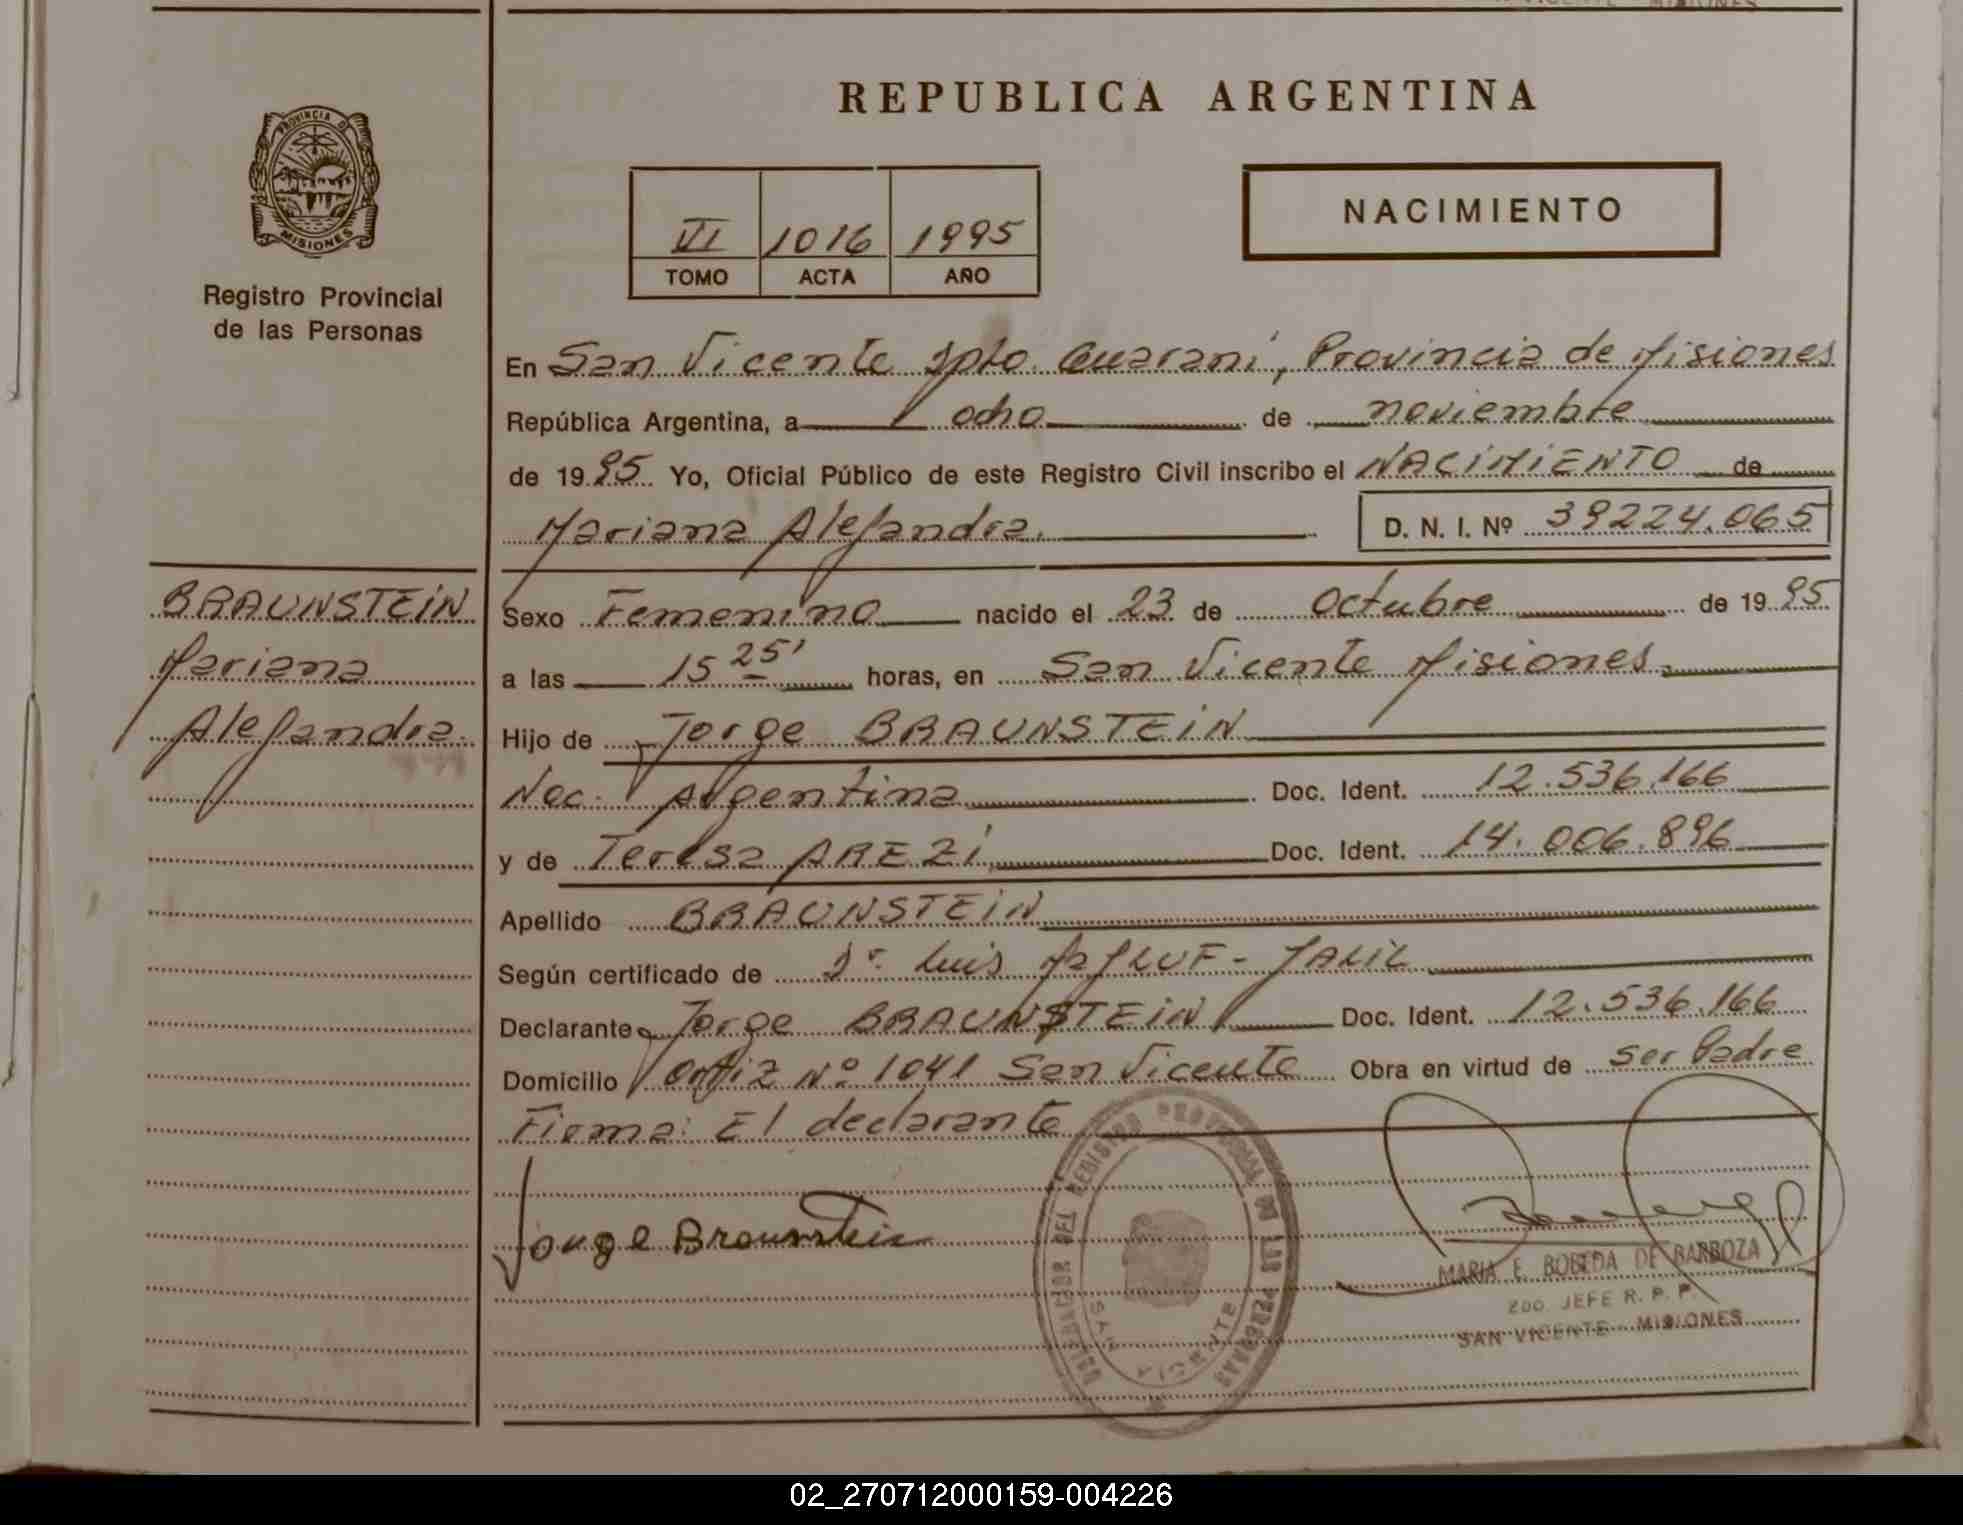 REPUBLICA ARGENTINA
PROVINCIA DE
MISIONES
Registro Provincial
de las Personas
VI 1016 1995
TOMO ACTA AÑO
NACIMIENTO
En San Vicente Dpto. Guaraní, Provincia de Misiones
República Argentina, a ocho de noviembre
de 19 95 Yo, Oficial Público de este Registro Civil inscribo el NACIMIENTO de
Mariana Alejandra. D. N. I. Nº 39224.065
BRAUNSTEIN
Mariana
Alejandra.
Sexo Femenino nacido el 23 de Octubre de 19 95.
a las 15 25' horas, en San Vicente Misiones
Hijo de Jorge BRAUNSTEIN
Nac. Argentina Doc. Ident. 12.536.166
y de Teresa AREZI Doc. Ident. 14.006.896
Apellido BRAUNSTEIN
Según certificado de Dr. Luis MaJLUF - JALIL
Declarante Jorge BRAUNSTEIN Doc. Ident. 12.536.166
Domicilio Ortiz Nº 1041 San Vicente Obra en virtud de ser Padre
Firma: El declarante
Jorge Braunstein
DELEGACION DEL REGISTRO PROVINCIAL DE LAS PERSONAS
SAN VICENTE
MARIA E. BOBEDA DE BARBOZA
2DO. JEFE R. P. P.
SAN VICENTE - MISIONES
02_270712000159-004226